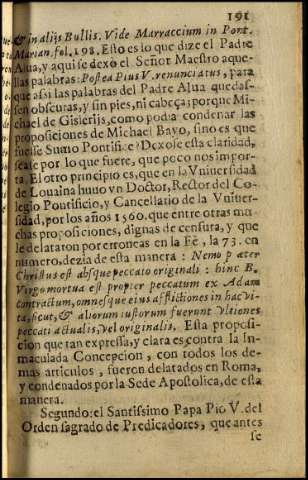 191
& in alijs Bullis. Vide Marraccium in Pont.
Marian. fol. 198. Esto es lo que dize el Padre
Alua, y aqui se dexò el Señor Maestro aque-
llas palabras: Postea Pius V. renunciatus, para
que assi las palabras del Padre Alua quedas-
sen obscuras, y sin pies, ni cabeça; porque Mi-
chael de Gislerijs, como podia condenar las
proposiciones de Michael Bayo, sino es que
fuesse Sumo Pontifice? Dexose esta claridad,
sease por lo que fuere, que poco nos impor-
ta. El otro principio es, que en la Vniuersidad
de Louaina huuo vn Doctor, Rector del Co-
legio Pontificio, y Cancellario de la Vniuer-
sidad, por los años 1560. que entre otras mu-
chas proposiciones, dignas de censura, y que
le delataron por erroneas en la Fè, la 73. en
numero, dezia de esta manera: Nemo præter
Christus est absque peccato originali: hinc B.
Virgo mortua est propter peccatum ex Adam
contractum, omnesque eius afflictiones in hac vi-
ta, sicut, & aliorum iustorum fuerunt vltiones
peccati actualis, vel originalis. Esta proposi-
cion que tan expressa, y clara es contra la In-
maculada Concepcion, con todos los de-
mas articulos, fueron delatados en Roma,
y condenados por la Sede Apostolica, de esta
manera.
Segundo: el Santissimo Papa Pio V. del
Orden sagrado de Predicadores, que antes
se